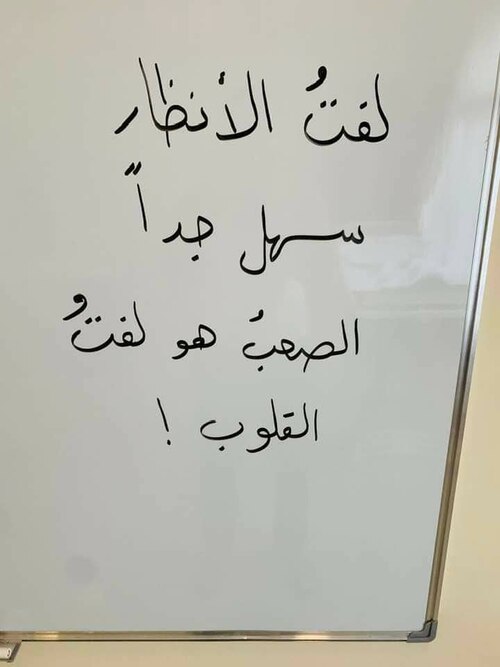 لفتُ الأنظار
سهل جداً
الصعبُ هو لفتُ
القلوب !